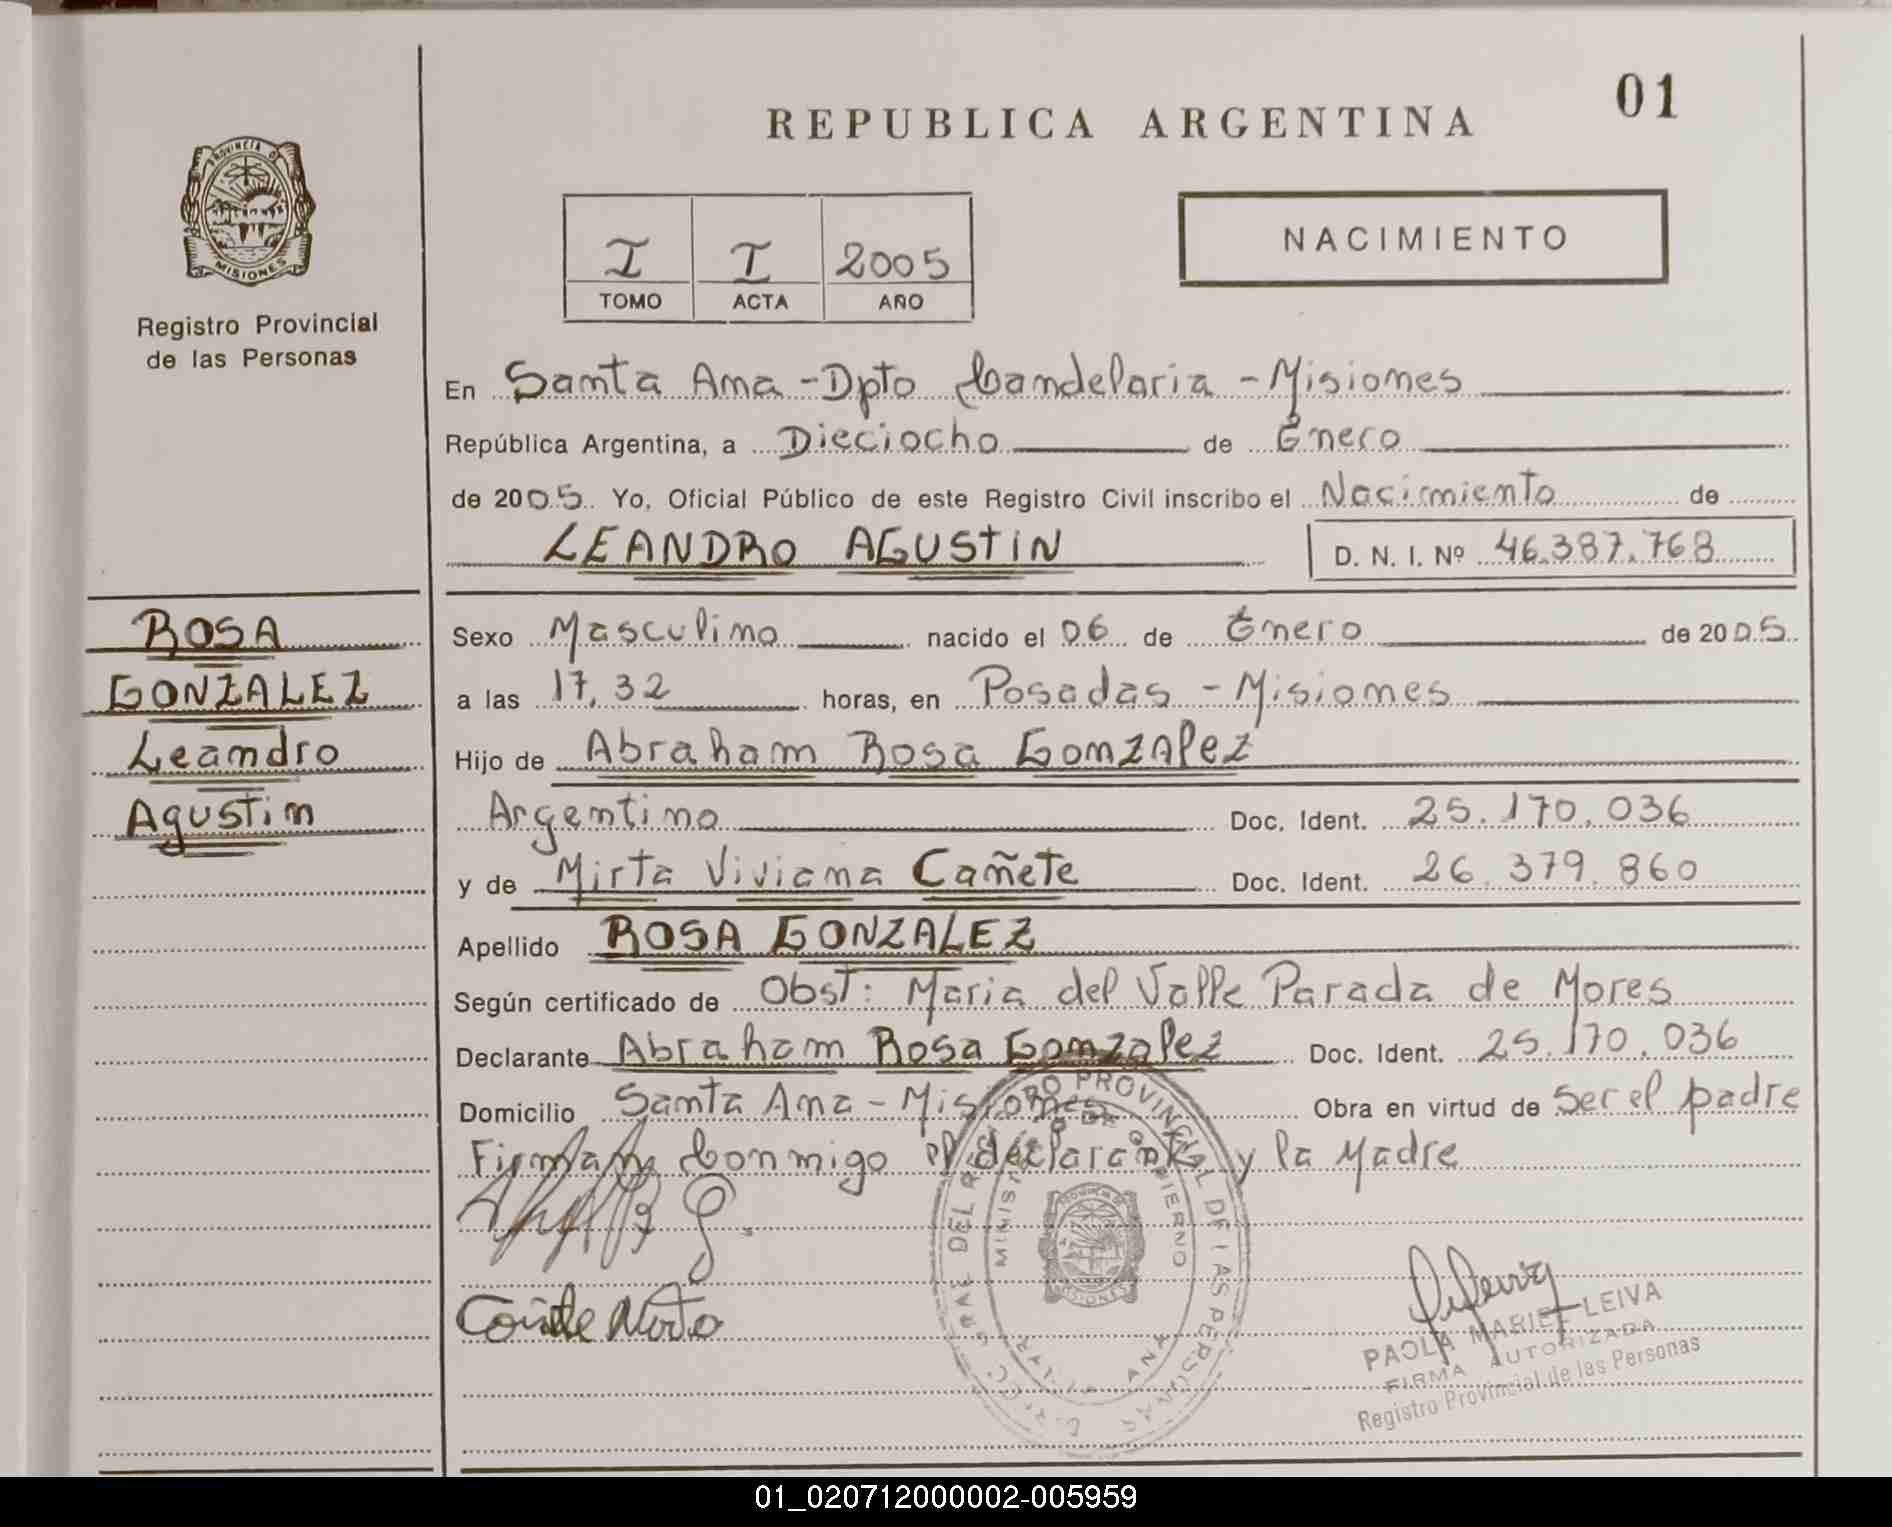 01
REPUBLICA ARGENTINA
PROVINCIA DE
MISIONES
Registro Provincial
de las Personas
I I 2005
TOMO ACTA AÑO
NACIMIENTO
En Santa Ana - Dpto Candelaria - Misiones
República Argentina, a Dieciocho de Enero
de 2005 Yo, Oficial Público de este Registro Civil inscribo el Nacimiento de
LEANDRO AGUSTIN D. N. I. Nº 46.387.768
ROSA
GONZALEZ
Leandro
Agustin
Sexo Masculino nacido el 06 de Enero de 2005
a las 17,32 horas, en Posadas - Misiones
Hijo de Abraham Rosa Gonzalez
Argentino Doc. Ident. 25.170.036
y de Mirta Viviana Cañete Doc. Ident. 26.379.860
Apellido ROSA GONZALEZ
Según certificado de Obst: Maria del Valle Parada de Mores
Declarante Abraham Rosa Gonzalez Doc. Ident. 25.170.036
Domicilio Santa Ana - Misiones Obra en virtud de Ser el padre
Firman Conmigo el declarante y la Madre
Cañete Mirta
PAOLA MARIEL LEIVA
FIRMA AUTORIZADA
Registro Provincial de las Personas
01_020712000002-005959